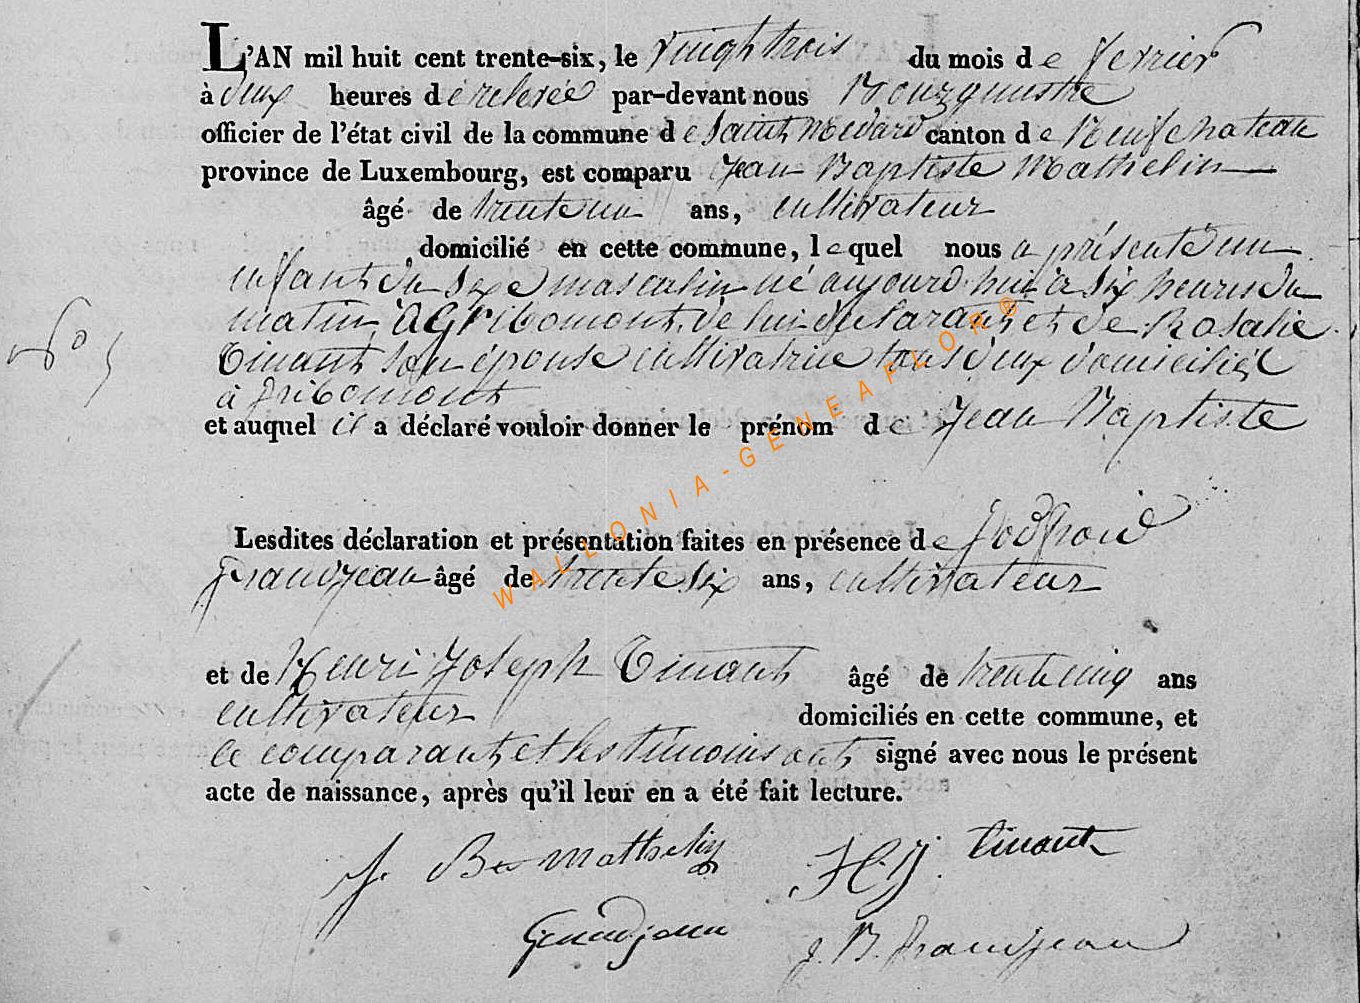 L'AN mil huit cent trente-six, le vingt trois du mois de fevrier
à deux heures de relevée par-devant nous Bourgmestre
officier de l'état civil de la commune de Saint Medard canton de Neufchateau
province de Luxembourg, est comparu Jean Baptiste Mathelin
âgé de trente un ans, cultivateur
domicilié en cette commune, lequel nous a présenté un
enfant du sexe masculin né aujourd'hui à six heures du
matin, à Gribomont, de lui déclarant et de Rosalie
Tinant son épouse cultivatrice tous deux domiciliés
à Gribomont
et auquel il a déclaré vouloir donner le prénom de Jean Baptiste
No 5
Lesdites déclaration et présentation faites en présence de Godfroid
Grandjean âgé de trente six ans, cultivateur
et de Henri Joseph Tinant âgé de trente cinq ans
cultivateur domiciliés en cette commune, et
le comparant et les témoins ont signé avec nous le présent
acte de naissance, après qu'il leur en a été fait lecture.
J. Bte Mathelin H. J. Tinant
Grandjean J. B. Grandjean
WALLONIA-GENEAFLOR®